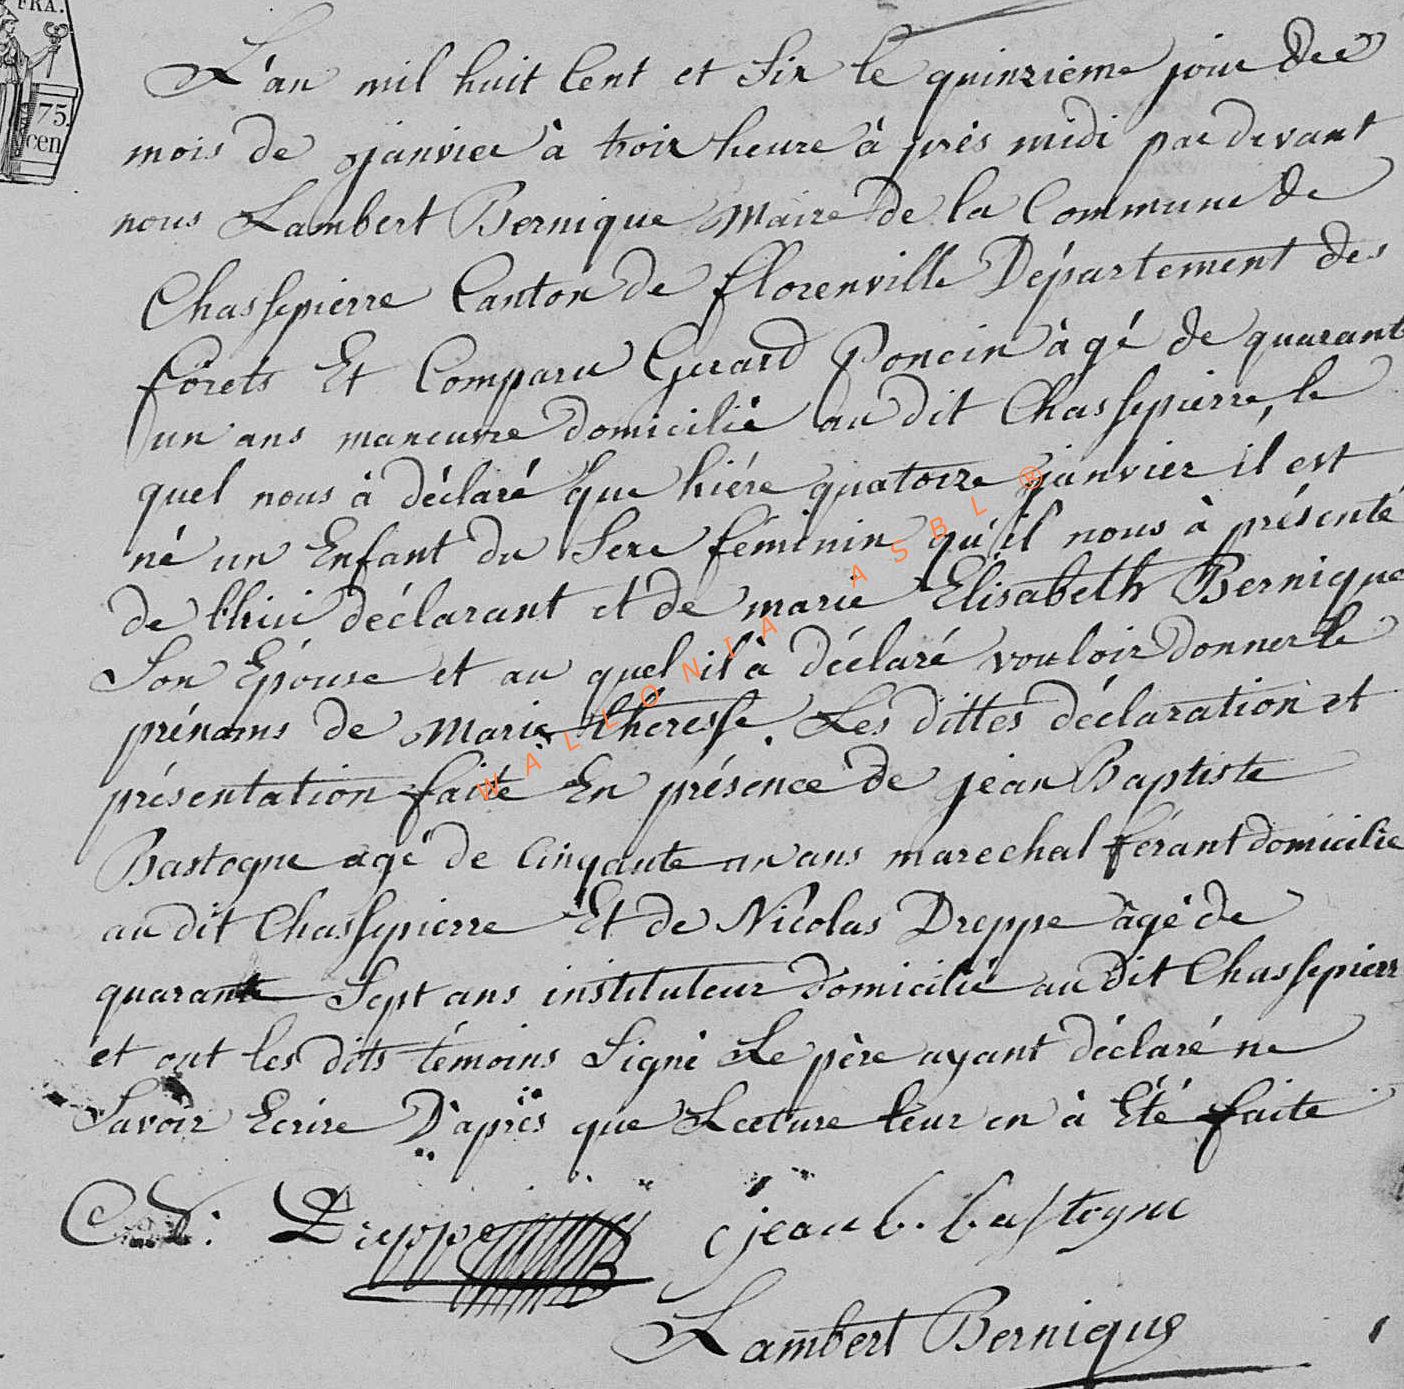 FRA.
75.
cen
L'an mil huit Cent et Six le quinzieme jour de
mois de janvier à trois heure à près midi par devant
nous Lambert Bernique Maire de la Commune de
Chassepierre Canton de florenville Département des
forêts Et Comparu Gerard Poncin àgé de quarant
un ans maneuvre domicilié au dit Chassepierre, le
quel nous à déclaré que hiére quatorze janvier il est
né un Enfant du Sexe féminin qu'il nous à présenté
de lhui déclarant et de marie Elisabeth Bernique
Son Epouse et au quel il à déclaré vouloir donner le
prénoms de Marie theresse. Les dittes déclaration et
présentation faite En présence de jean Baptiste
Bastogne agé de Cinqante un ans marechal férant domicilie
au dit Chassepierre Et de Nicolas Dreppe âgé de
quarante Sept ans instituteur domicilié au dit Chassepierr
et ont les dits témoins Signé Le père ayant déclaré ne
Savoir Ecrire D'après que Lecture leur en à Eté faite
Dreppe jean b. bastogne
Lambert Bernique
WALLONIA ASBL ®